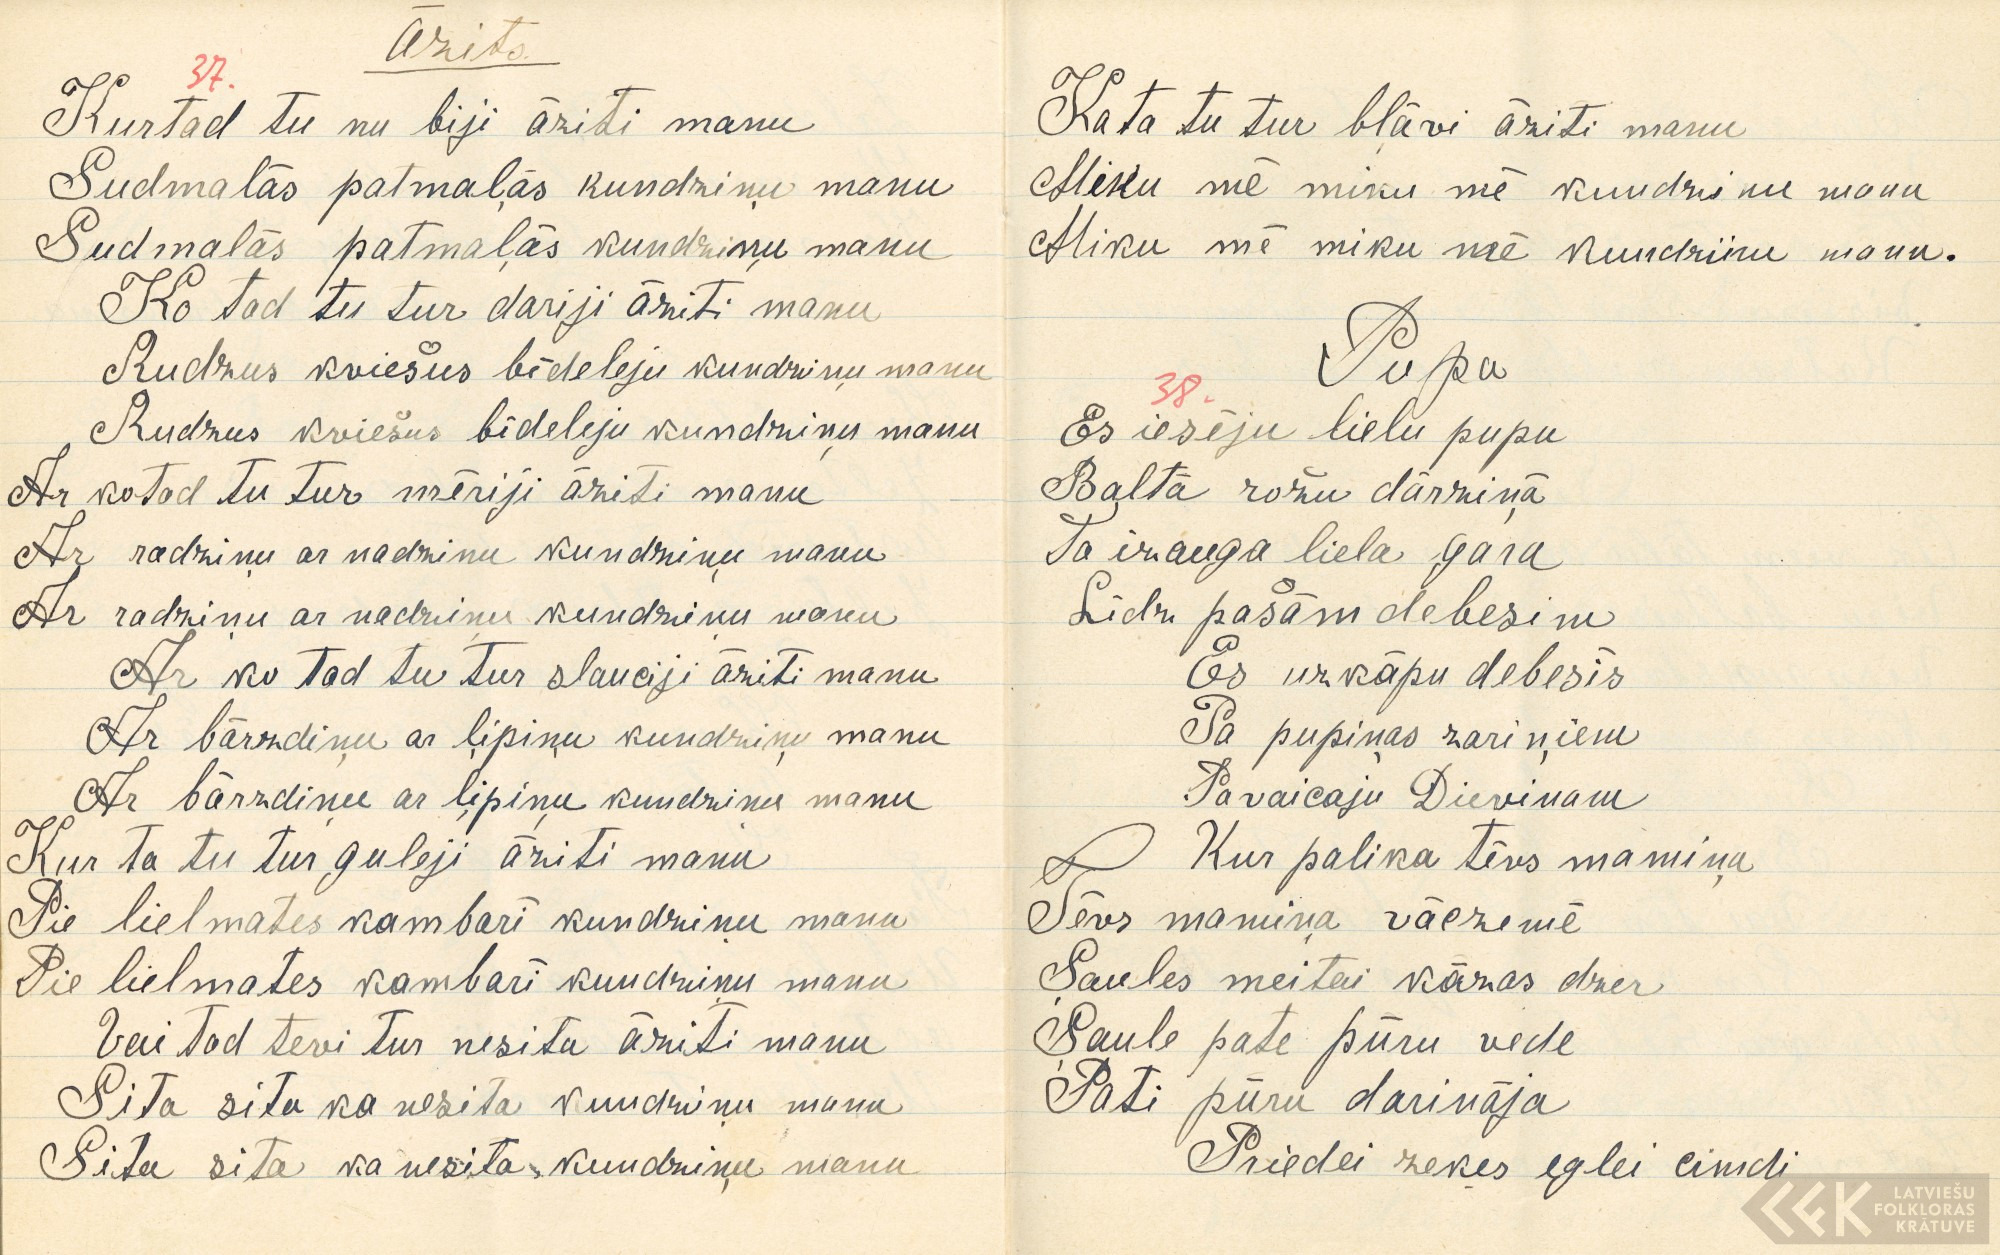 Āzits.
37.
Kurtad tu nu biji āziti manu
Sudmalās patmaļās kundziņu manu
Sudmalās patmaļās kundziņu manu
Ko tad tu tur dariji āziti manu
Rudzus kviešus bīdeleju kundziņu manu
Rudzus kviešus bīdeleju kundziņu manu
Ar kotad tu tur mēriji āziti manu
Ar radziņu ar nadzinu kundziņu manu
Ar radziņu ar nadziņu kundziņu manu
Ar ko tad tu tur slauciji āziti manu
Ar bārzdiņu ar ļipiņu kundziņu manu
Ar bārzdiņu ar ļipiņu kundziņu manu
Kur ta tu tur guleji āziti manu
Pie lielmates kambarī kundziņu manu
Pie lielmates kambarī kundziņu manu
Vai tad tevi tur nesita āziti manu
Sita sita ka nesita kundziņu manu
Sita sita ka nesita, kundziņu manu
Kata tu tur bļāvi āziti manu
Miku mē miku mē kundzinu manu
Miku mē miku mē kundziņu manu.
Pupa
38.
Es iesēju lielu pupu
Baltā rožu dārziņā
Ta izauga liela gara
Līdz pašām debesim
Es uzkāpu debesīs
Pa pupiņas zariņiem
Pavaicaju Dievinam
Kur palika tēvs mamiņa
Tēvs mamiņa vāczemē
Saules meitai kāzas dzer
Saule pate pūru vede
Pati pūru darināja
Priedei zeķes eglei cimdi
LATVIEŠU
FOLKLORAS
KRĀTUVE